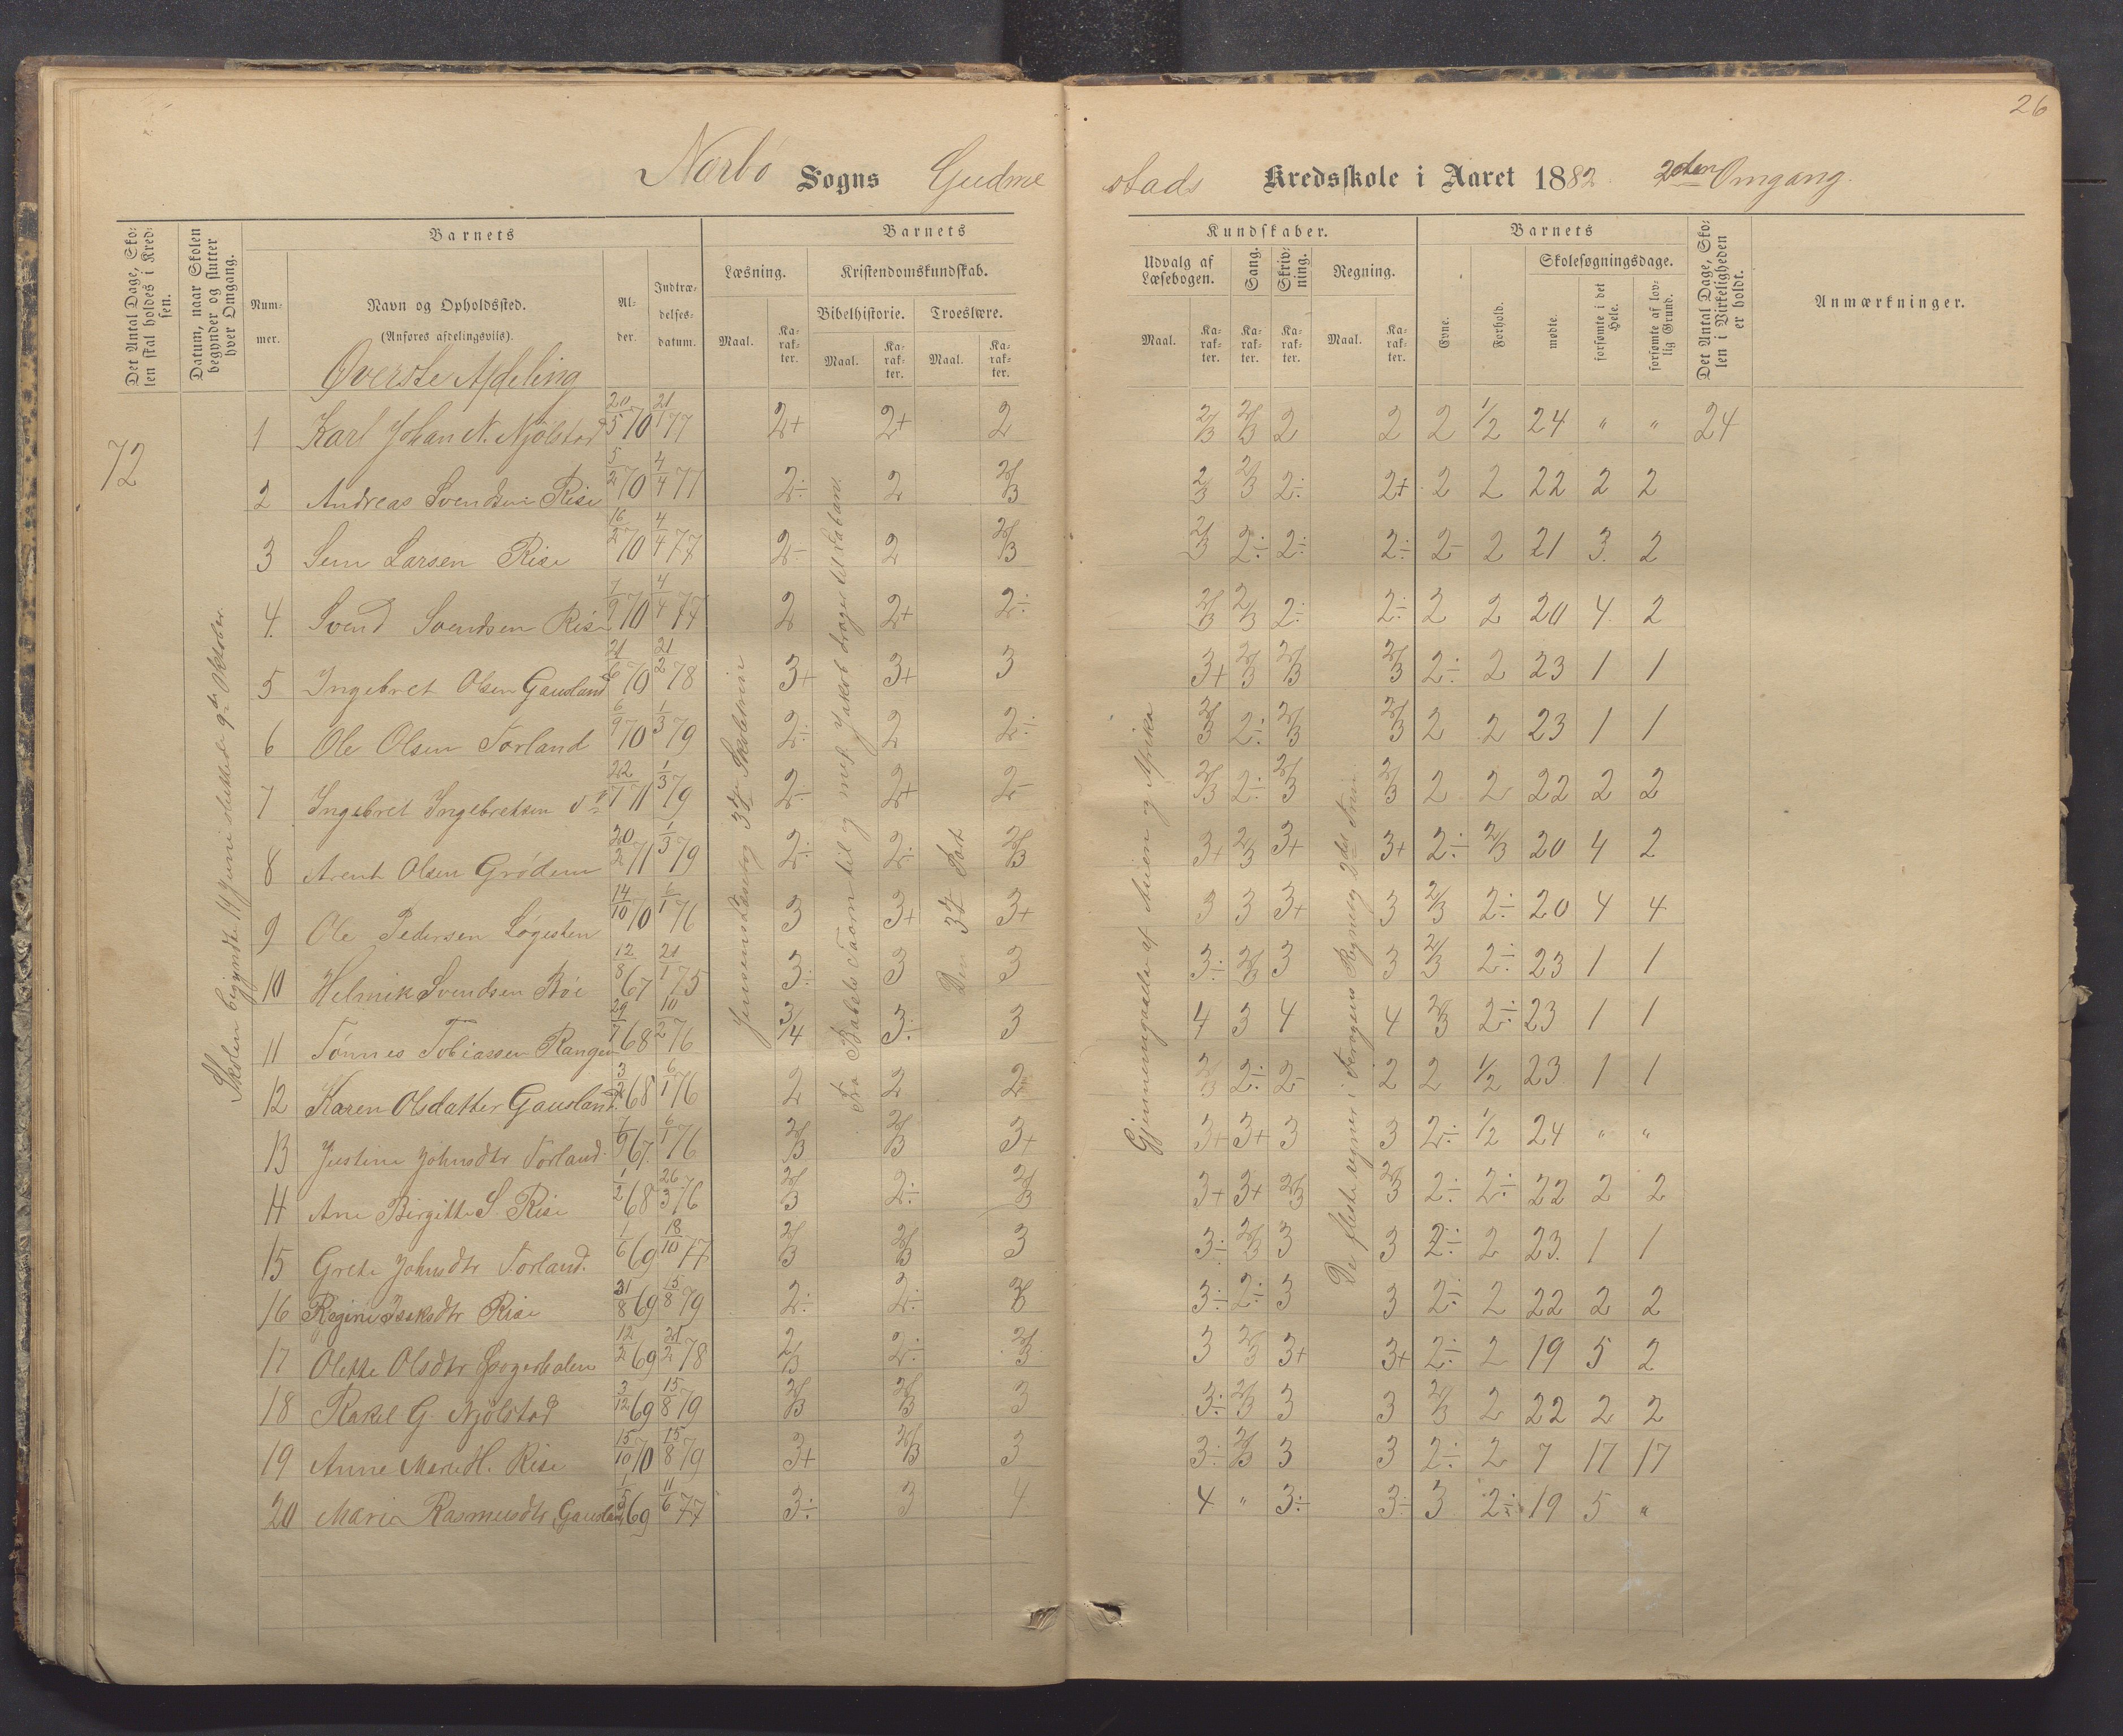 26
Nærbø Sogns Gudme stads Kredsskole i Aaret 1882 2den Omgang.
Det Antal Dage, Skolen skal holdes i Kredsen.
Datum, naar Skolen begynder og slutter hver Omgang.
Barnets
Barnets
Kundskaber.
Barnets
Det Antal Dage, Skolen i Virkeligheden er holdt.
Anmærkninger.
Nummer.
Navn og Opholdssted.
(Anføres afdelingsviis).
Alder.
Indtrædelsesdatum.
Læsning.
Kristendomskundskab.
Bibelhistorie.
Troeslære.
Udvalg af Læsebogen.
Sang.
Skrivning.
Regning.
Evne.
Forhold.
Skolesøgningsdage.
mødte.
forsømte i det Hele.
forsømte af lovlig Grund.
Maal. Karakter. Maal. Karakter. Maal. Karakter. Maal. Karakter. Karakter. Karakter. Maal. Karakter.
Øverste Afdeling
72
Skolen begyndte 19 Juni sluttede 9de Oktober.
Jensens Læsebog 3die Skoletrin
Fra Babels Taarn til og med Jakob drager til Laban.
Den 3die Part
Gjennemgaaet af Asien og Afrika
De fleste regner i Regnebog
1 Karl Johan N. Njølstad 20/5 70 21/1 77 2+ 2+ 2 2/3 2/3 2 2 2 1/2 24 " " 24
2 Andreas Svendsen Rise 5/2 70 4/4 77 2÷ 2 2/3 2/3 2/3 2÷ 2+ 2 2 22 2 2
3 Sem Larsen Rise 16/2 70 4/4 77 2÷ 2 2/3 2/3 2÷ 2÷ 2÷ 2 2 21 3 2
4 Svend Svendsen Rise 7/9 70 4/4 77 2 2+ 2÷ 2/3 2/3 2÷ 2÷ 2 2 20 4 2
5 Ingebret Olsen Gausland 21/6 70 21/2 78 3+ 3+ 3 3+ 2/3 2/3 2/3 2÷ 2 23 1 1
6 Ole Olsen Torland 6/9 70 1/3 79 2÷ 2 2÷ 2/3 2÷ 2/3 2/3 2 2 23 1 1
7 Ingebret Ingebretsen 22/1 71 1/3 79 2÷ 2+ 2÷ 2/3 2÷ 2/3 2/3 2 2 22 2 2
8 Arent Olsen Grødem 20/2 71 1/3 79 2÷ 2÷ 2/3 3+ 2/3 3+ 3+ 2÷ 2/3 20 4 2
9 Ole Pedersen 14/10 70 6/1 76 3 3+ 3+ 3 3 3+ 3 2/3 2÷ 20 4 4
10 Helmik Svendsen Bøe 12/8 67 21/1 75 3÷ 3 3 3÷ 2/3 3 3 2/3 2÷ 23 1 1
11 Tønnes Tobiassen 29/1 68 10/2 76 3/4 3÷ 3 4 3 4 4 2/3 2÷ 23 1 1
12 Karen Olsdatter Gausland 3/2 68 6/1 76 2 2 2 2/3 2÷ 2÷ 2 2 1/2 23 1 1
13 Justine Johnsdtr Torland. 7/9 67 6/1 76 2/3 2/3 3+ 3+ 3+ 3 3 2÷ 1/2 24 " "
14 Ane Birgitte S. Rise 1/2 68 26/3 76 2/3 2÷ 2/3 3+ 3+ 2/3 2/3 2÷ 2÷ 22 2 2
15 Grete Johnsdtr Torland. 1/6 69 18/10 77 2/3 2/3 3 3÷ 2/3 3 3 2÷ 2 23 1 1
16 Regine Isaksdtr Rise 31/8 69 15/8 79 2÷ 2÷ 3÷ 2÷ 3 3 2÷ 2 22 2 2
17 Olette Olsdtr 12/2 69 21/2 78 2/3 2÷ 2/3 3 2/3 3+ 3+ 2÷ 2 19 5 2
18 Rakel G. Njølstad 3/12 69 15/8 79 2/3 2/3 3 3÷ 2/3 3 3 2/3 2 22 2 2
19 Anne Marie H. Rise 15/10 70 15/8 79 3+ 2/3 3 3÷ 2/3 3 3 2÷ 2 7 17 17
20 Maria Rasmusdtr Gausland 1/5 69 11/6 77 3÷ 3 4 4 " 3÷ 3÷ 3 2÷ 19 5 "